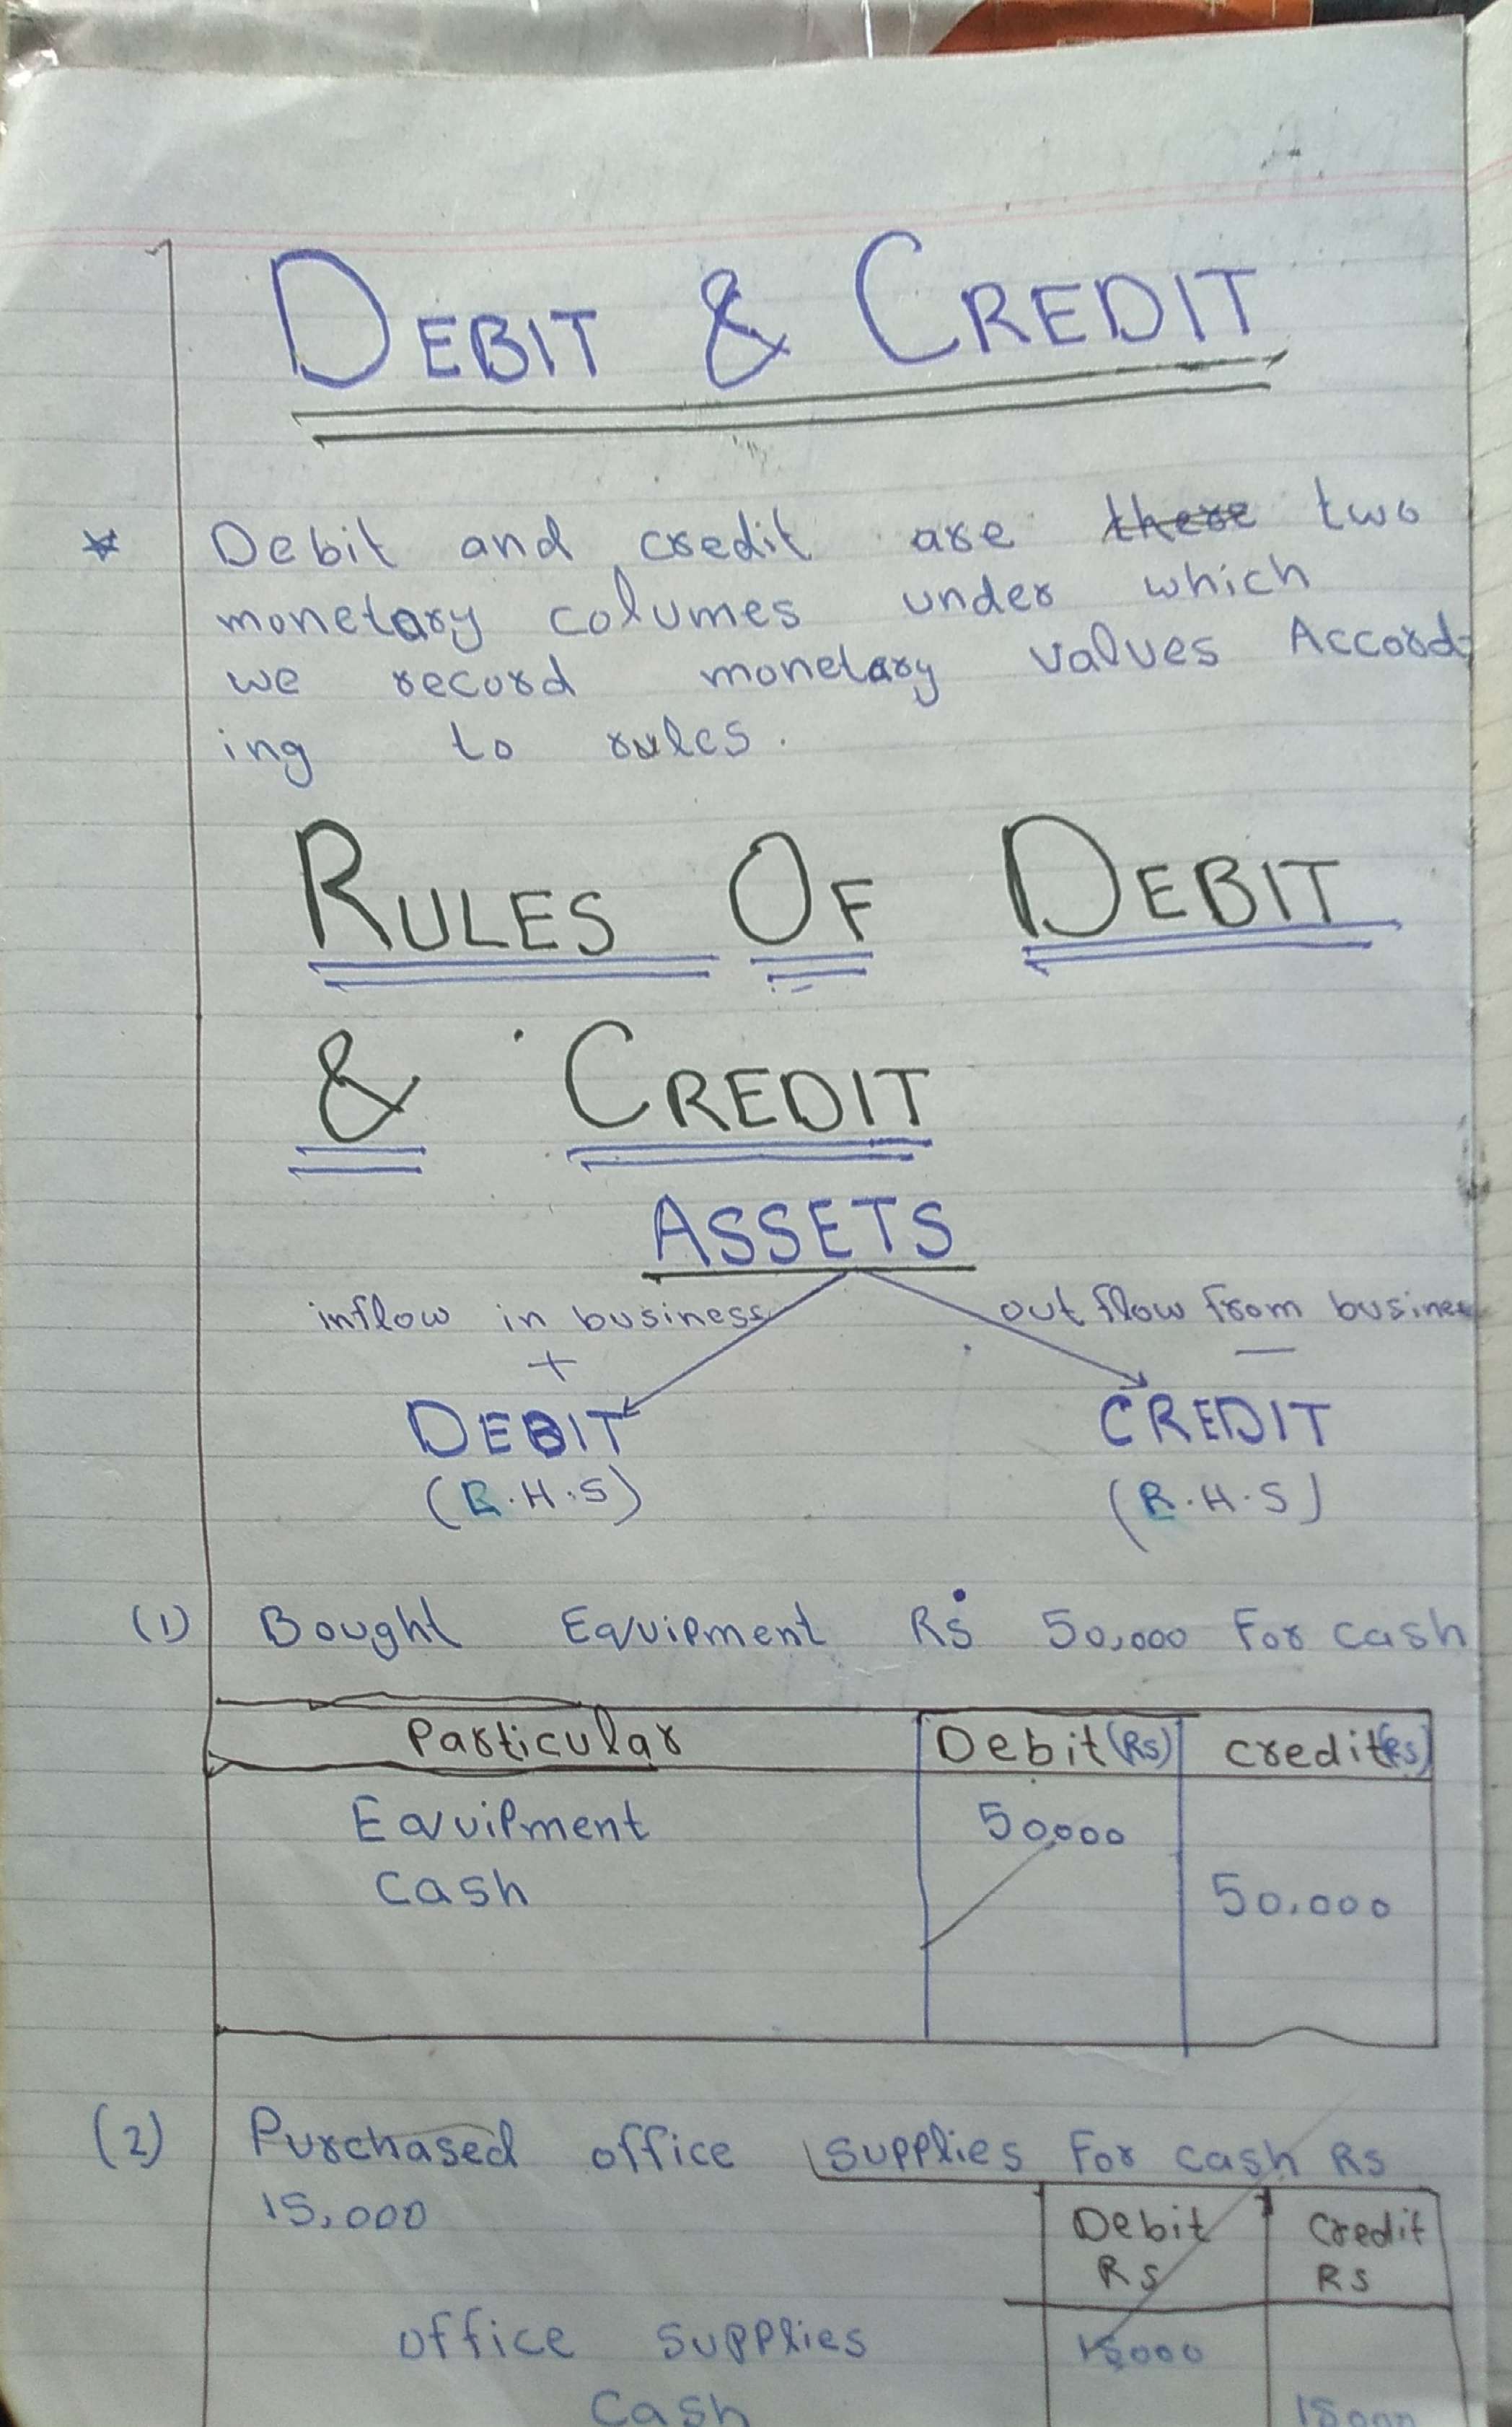 DEBIT & CREDIT
Debit and credit are there two
monetary columes under which
we record monetary values Accord-
ing to rules.
RULES OF DEBIT
& CREDIT
ASSETS
inflow in business out flow from busines
+ —
DEBIT CREDIT
(R.H.S) (R.H.S)
(1) Bought Equipment Rs 50,000 For cash
Particular Debit (Rs) credit (Rs)
Equipment 50,000
Cash 50,000
(2) Purchased office supplies For cash Rs
15,000
Debit Credit
Rs Rs
office supplies 15000
Cash 15000